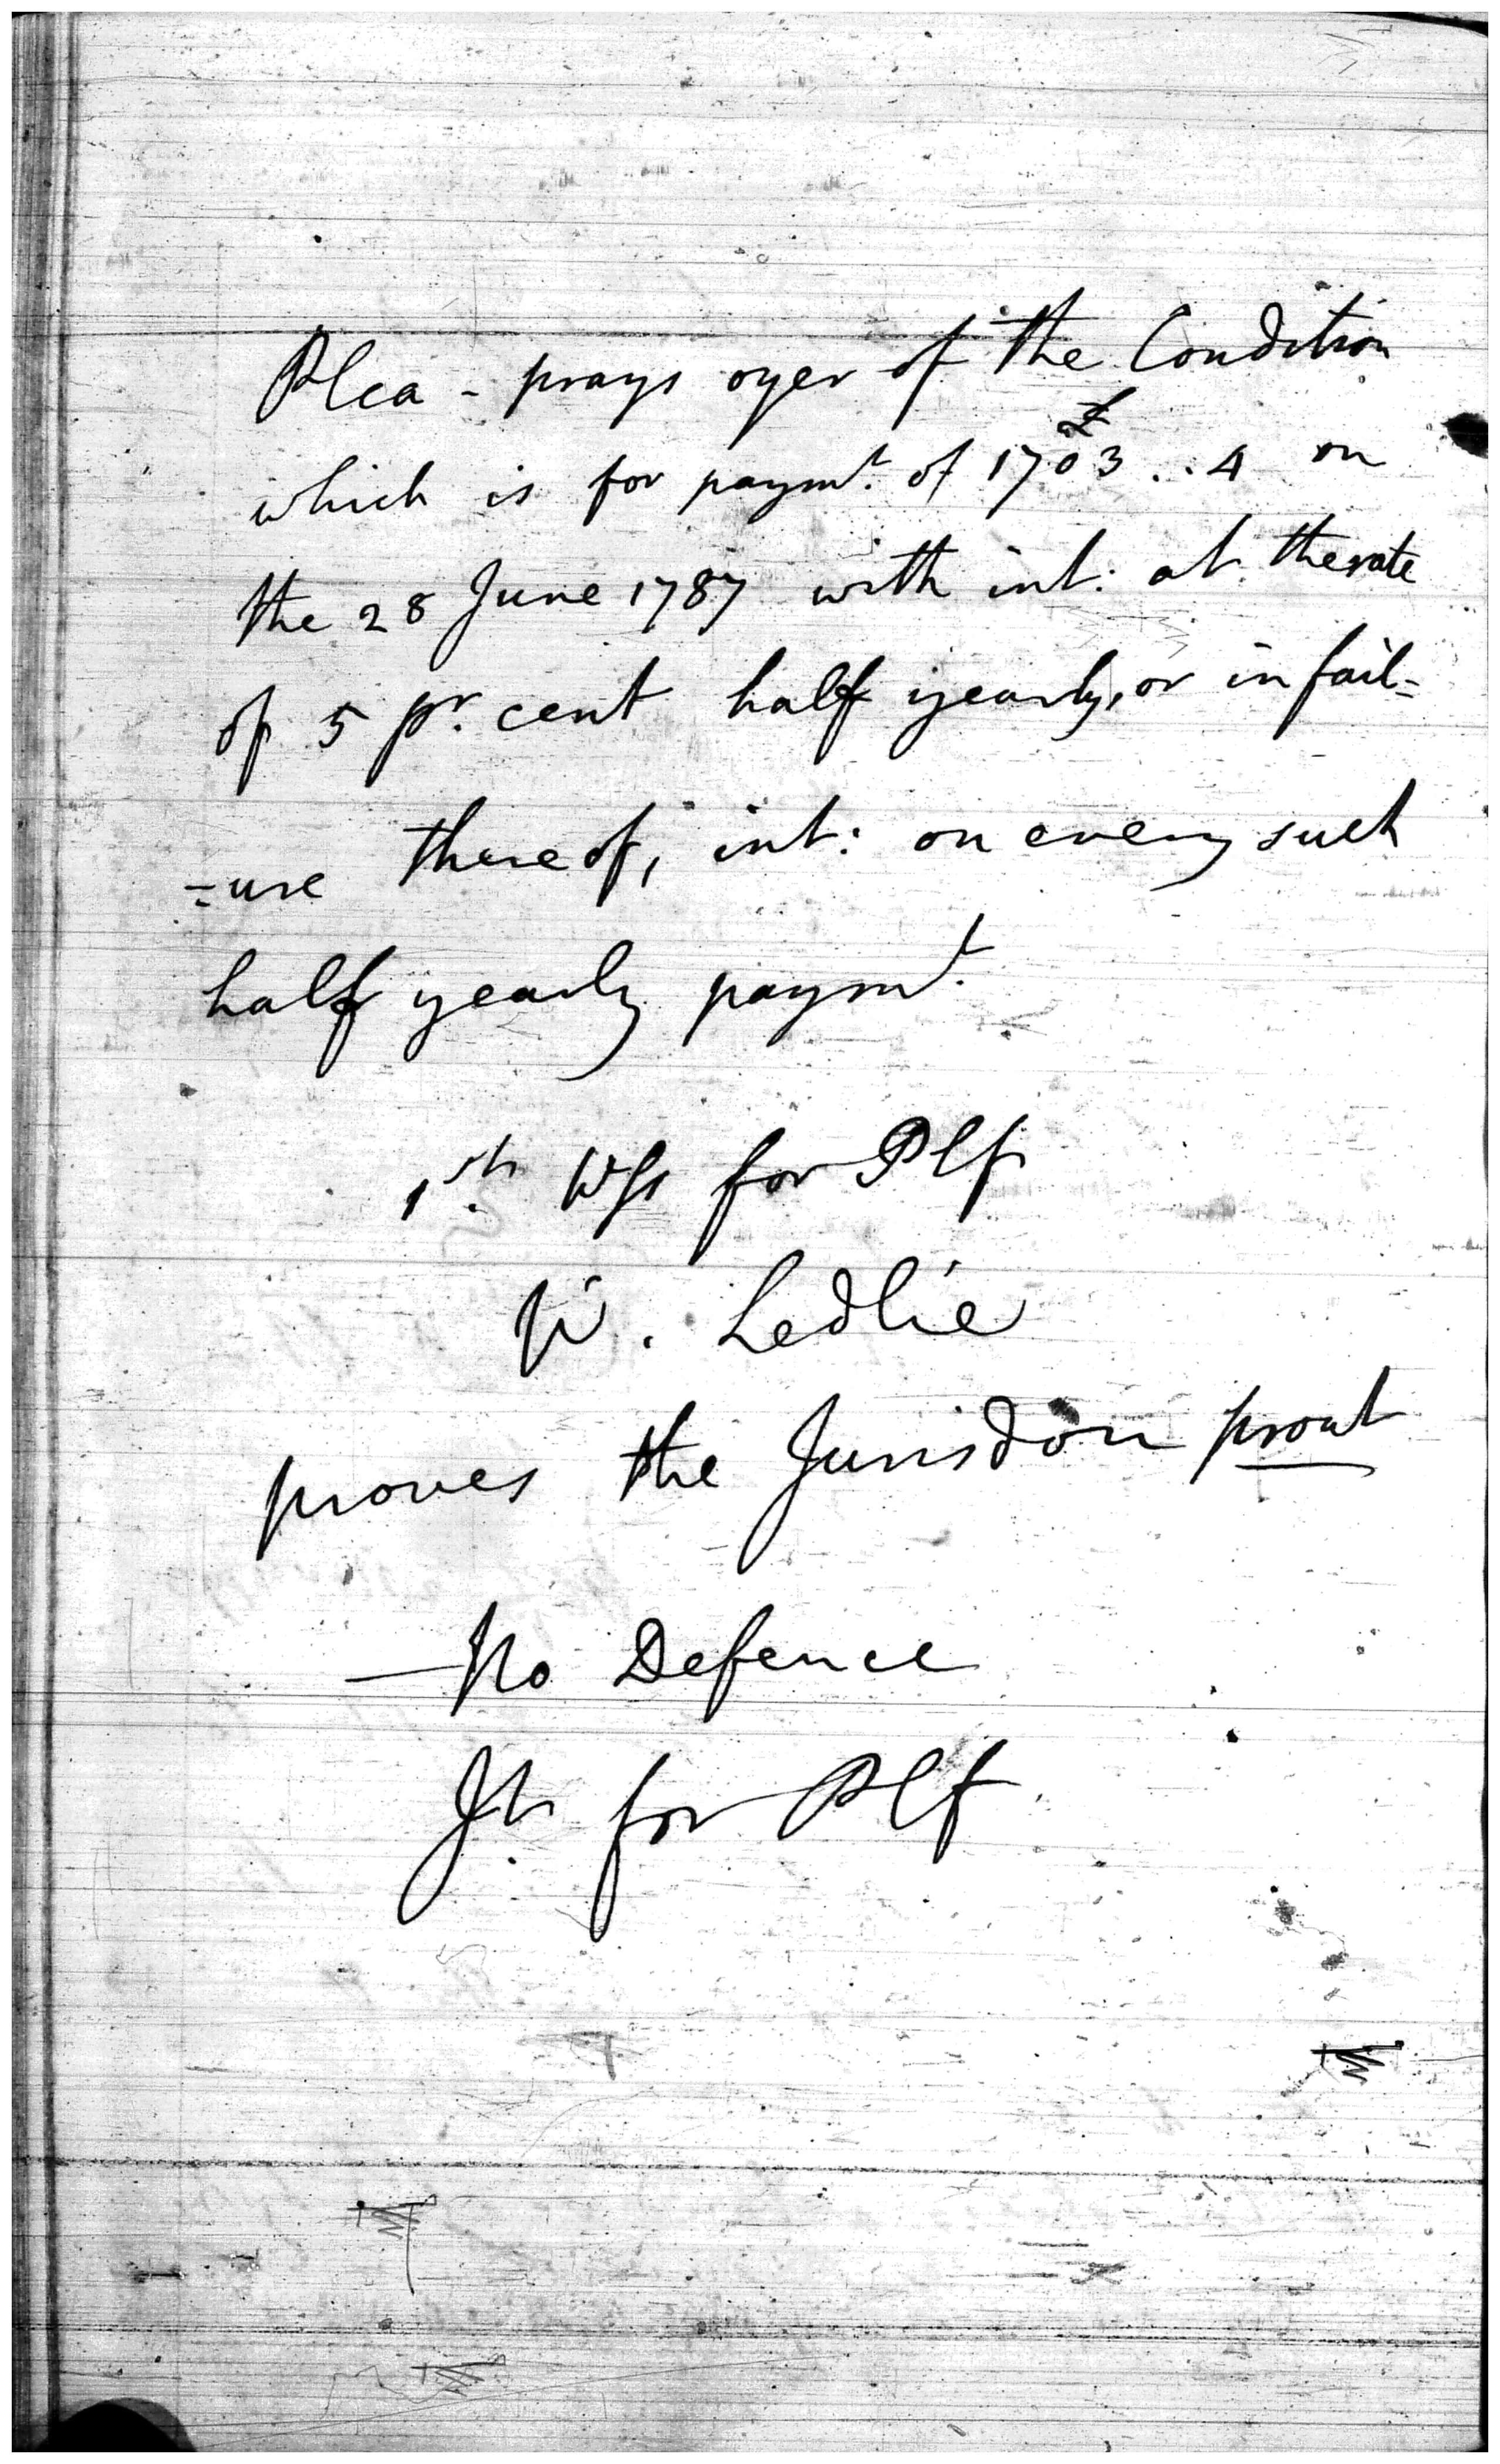 Plea - prays oyer of the Condition
which is for paymt. of 1703 £ .. 4 on
the 28 June 1787 with int: at the rate
of 5 pr. cent half yearly, or in fail=
=ure thereof, int: on every such
half yearly paymt.
1st. Wss for Plf
W. Ledlie
proves the Jurisdon prout
— No Defence
Jt. for Plf